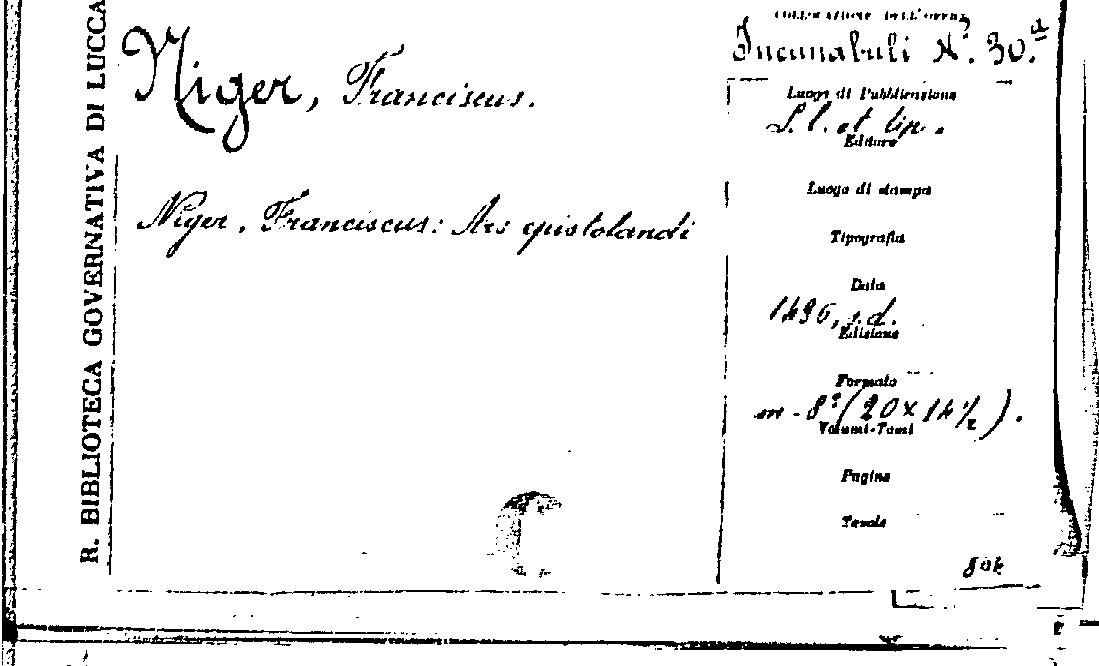 R. BIBLIOTECA GOVERNATIVA DI LUCCA
Niger, Franciscus.
Niger, Franciscus: Ars epistolandi
COLLOCAZIONE DELL'OPERA
Incunabuli N.º 30.a
Luogo di Pubblicazione
S. l. et tip.
Editore
Luogo di stampa
Tipografia
Data
1496, s.d.
Edizione
Formato
in-8º (20 x 14½).
Volumi-Tomi
Pagine
Tavole